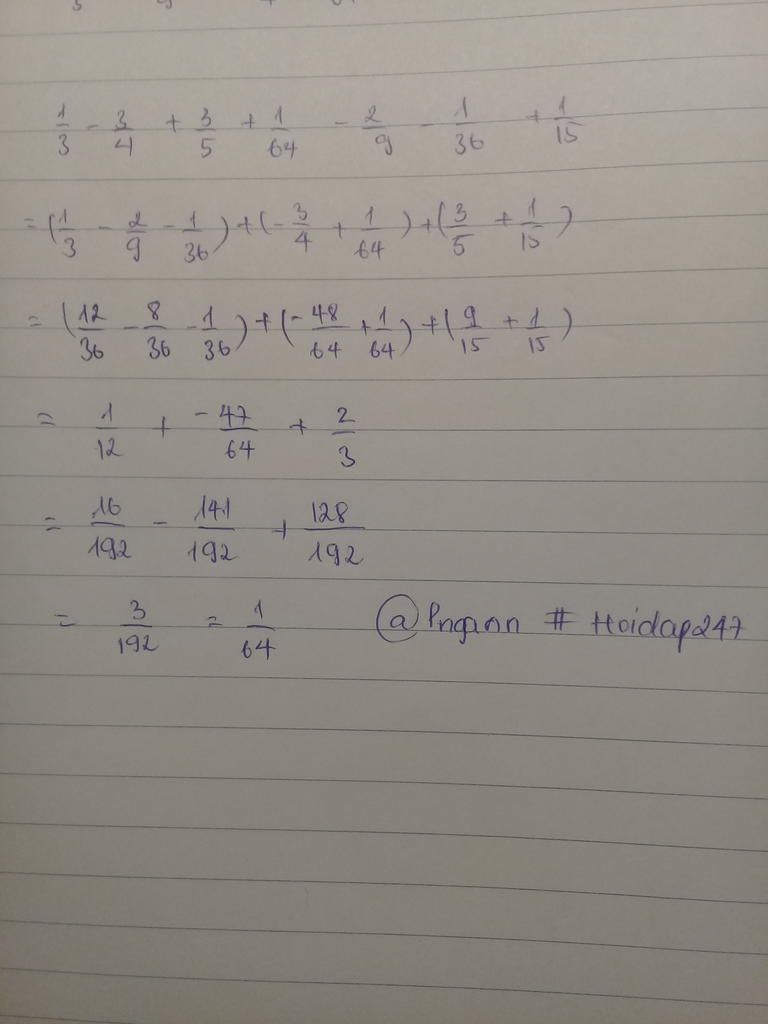 1/3 - 3/4 + 3/5 + 1/64 - 2/9 - 1/36 + 1/15
= (1/3 - 2/9 - 1/36) + (-3/4 + 1/64) + (3/5 + 1/15)
= (12/36 - 8/36 - 1/36) + (-48/64 + 1/64) + (9/15 + 1/15)
= 1/12 + -47/64 + 2/3
= 16/192 - 141/192 + 128/192
= 3/192 = 1/64 @Pngann # Hoidap247